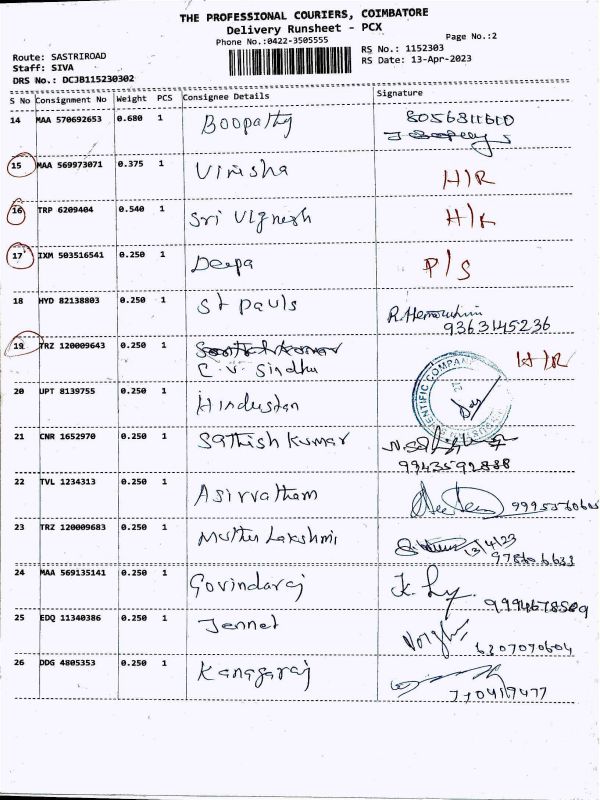 THE PROFESSIONAL COURIERS, COIMBATORE
Delivery Runsheet - PCX
Phone No.:0422-3505555
Page No.:2
Route: SASTRIROAD
Staff: SIVA
DRS No.: DCJB115230302
RS No.: 1152303
RS Date: 13-Apr-2023
S No Consignment No Weight PCS Consignee Details Signature
14 MAA 570692653 0.680 1 Boopathy 8056311610
15 MAA 569973071 0.375 1 Vinisha H/R
16 TRP 6209404 0.540 1 Sri Vignesh H/R
17 IXM 503516541 0.250 1 Deepa P/S
18 HYD 82138803 0.250 1 St pauls
9363145236
19 TRZ 120009643 0.250 1 H/R
C.V. Sindhu
20 UPT 8139755 0.250 1 Hindustan
21 CNR 1652970 0.250 1 Sathish Kumar
9943592888
22 TVL 1234313 0.250 1 Asirvatham
23 TRZ 120009683 0.250 1 Muthu Lakshmi 13/4/23
24 MAA 569135141 0.250 1 Govindaraj
9994678509
25 EDQ 11340386 0.250 1 Jennet
6307070604
26 DDG 4805353 0.250 1 Kanagaraj